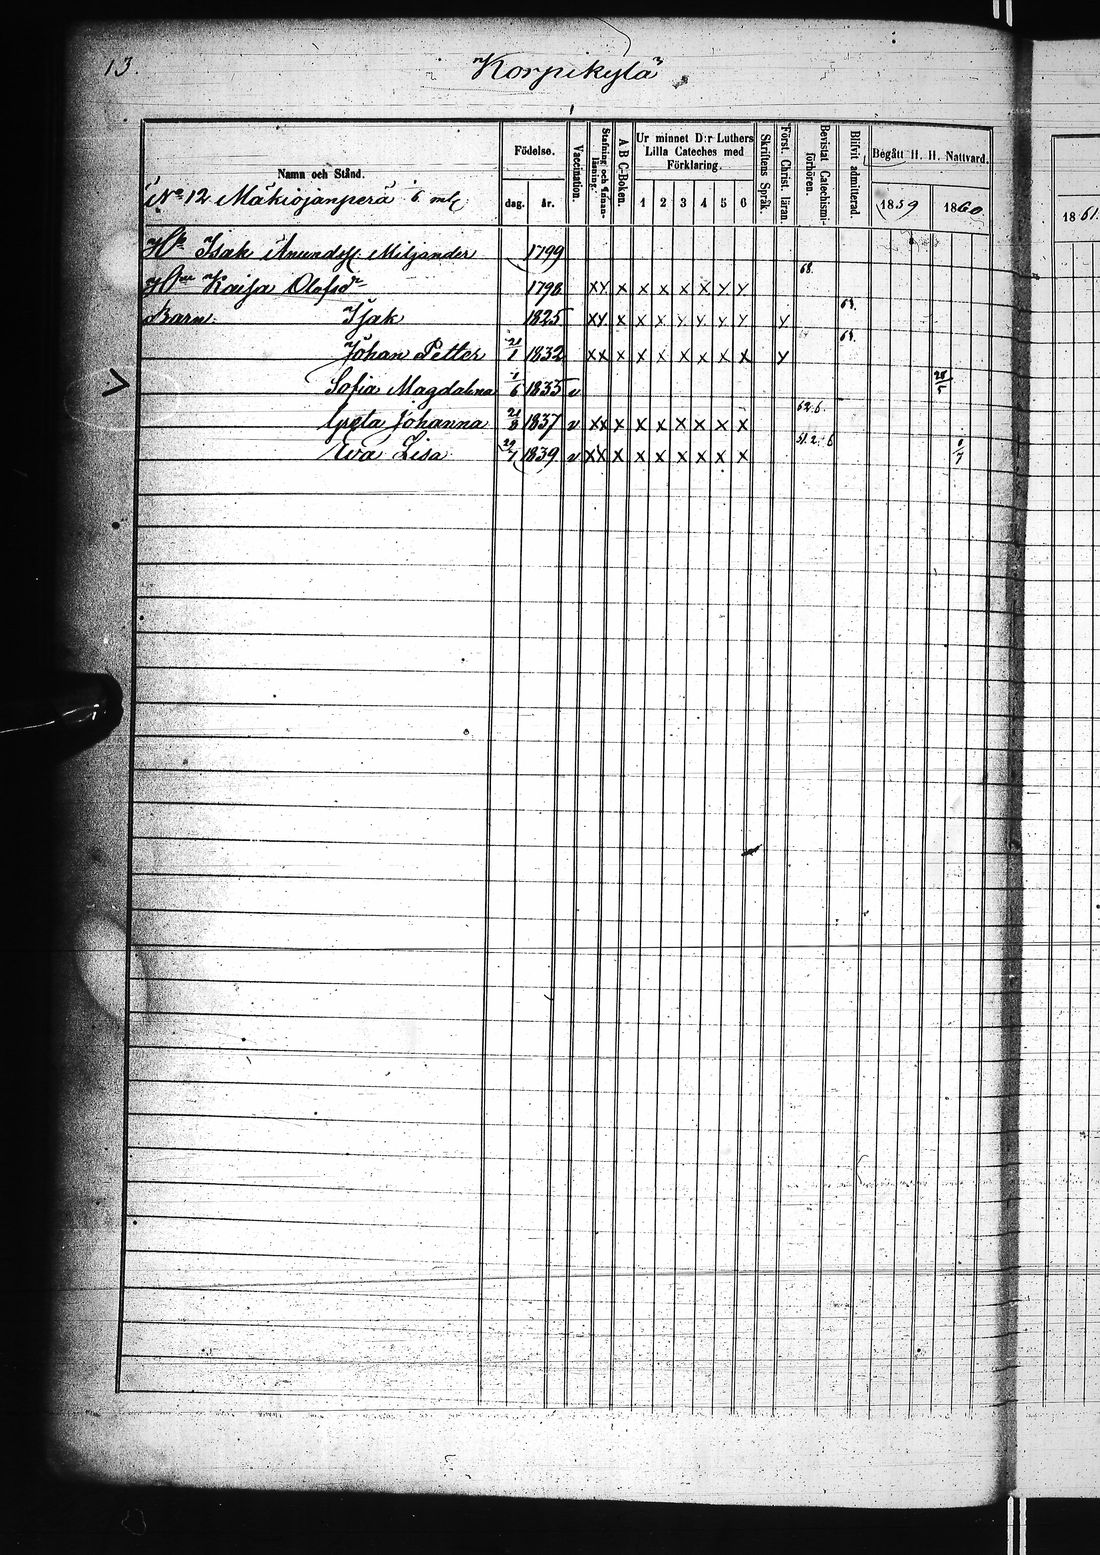 13.
Korpikylä
Namn och Stånd.
Födelse.
dag.
år.
Vaccination.
Stafning och Innan-
läsning.
A B C-Boken.
Ur minnet D:r Luthers
Lilla Cateches med
Förklaring.
1 2 3 4 5 6
Skriftens Språk.
Först. Christ. läran.
Bevistat Catechismi-
förhören.
Blifvit admitterad
Begått H. H. Nattvard.
1859 1860
1861
No 12 Mäkiojanperä 6 mtl
Isak Anundss. Miljander 1799
Kaisa Olofsdr 1798 x y x x x x x y y 68.
Barn: Isak 1825 x y x x x y y y y y 63.
Johan Petter 21/1 1832 x x x x x x x x x y 63.
Sofia Magdalena 1/6 1835 v 28/5
Greta Johanna 21/8 1837 v x x x x x x x x x 62.6.
Eva Lisa 29/7 1839 v x x x x x x x x x 51.2.6 1/7